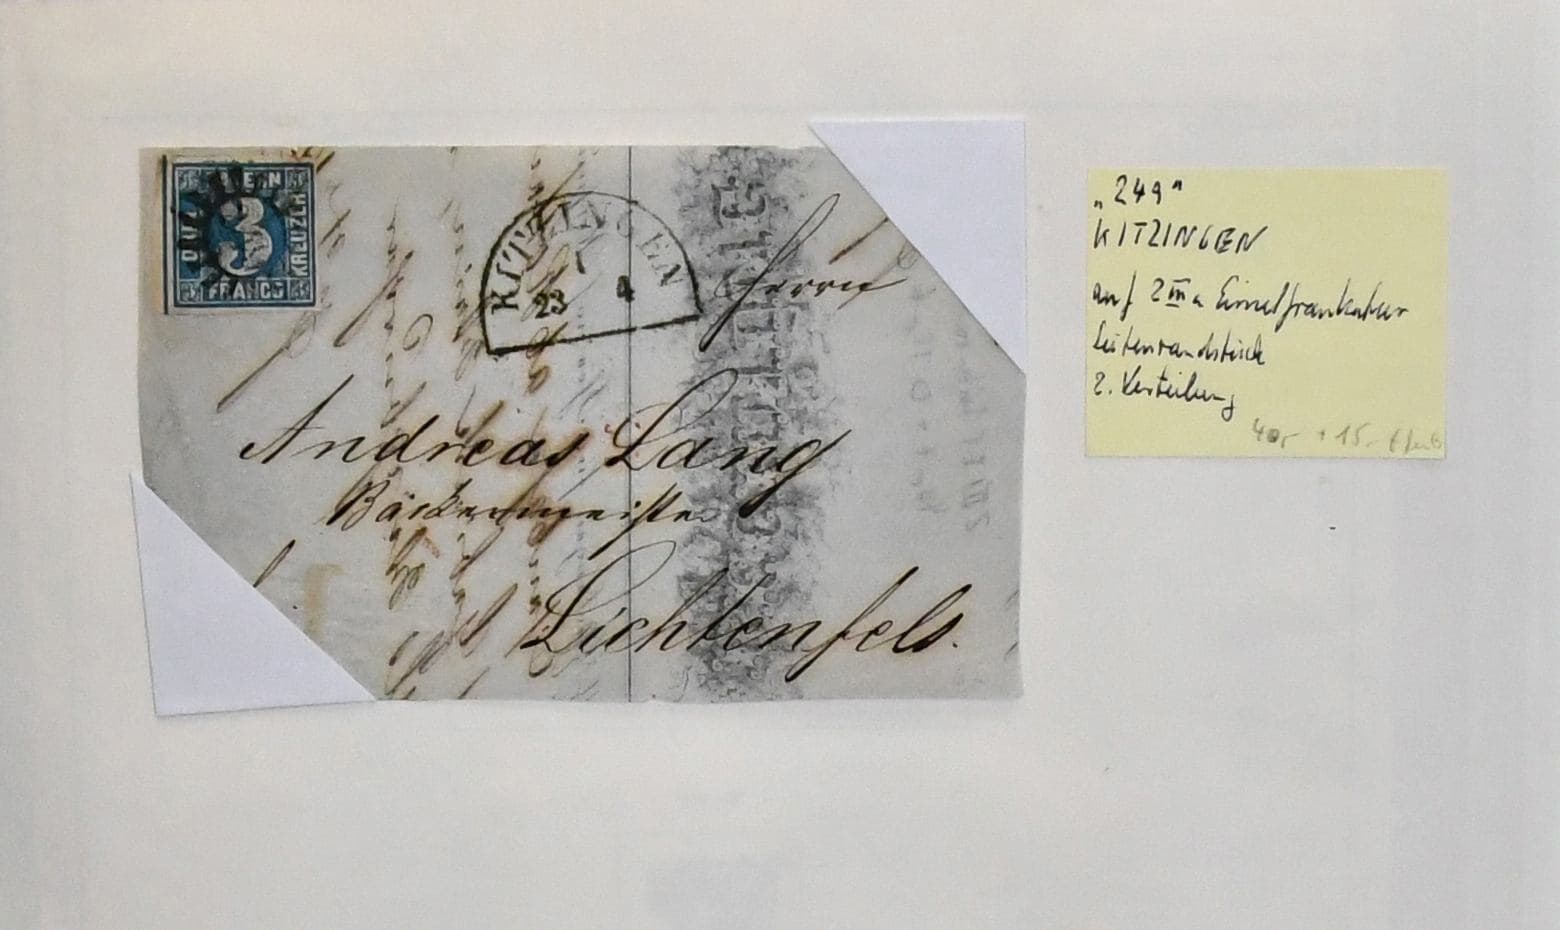 BAYERN
DREI
3
KREUZER
FRANCO
KITZINGEN
23 4
Herrn
Andreas Lang
Bäckermeister
Lichtenfels.
„249"
KITZINGEN
auf 2 III a Einzelfrankatur
Seitenrandstück
2. Verteilung
40,- + 15,-